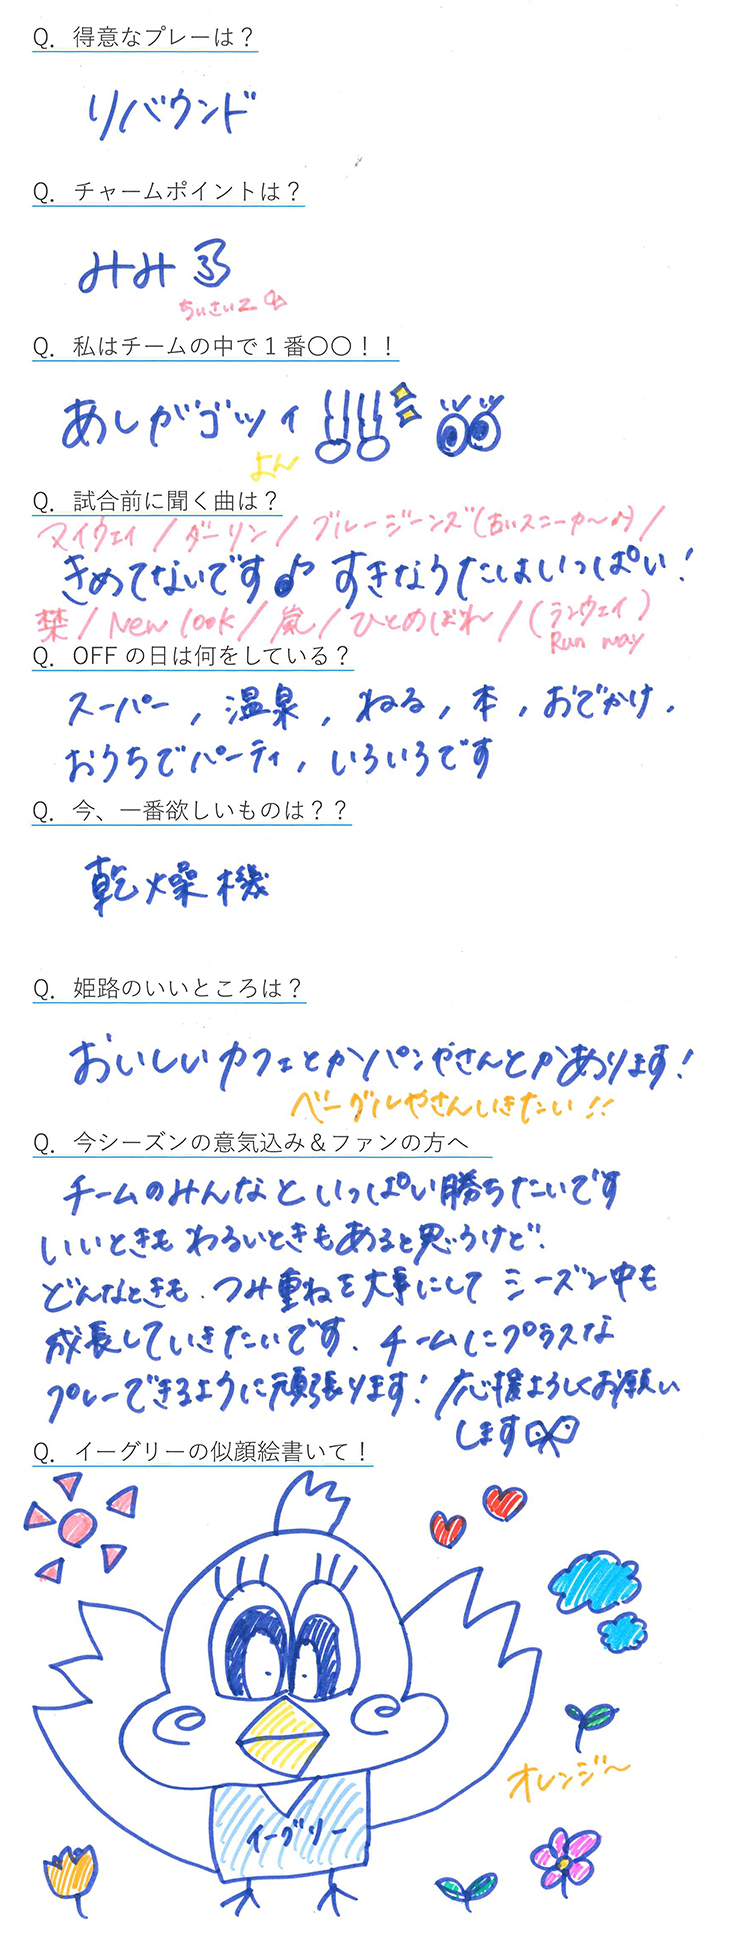 Q. 得意なプレーは？
リバウンド
Q. チャームポイントは？
みみ
ちいさい
Q. 私はチームの中で１番〇〇！！
あしがゴツイ
よん
Q. 試合前に聞く曲は？
マイウェイ / ダーリン / ブルージーンズ(古いスニーカー〜♪) /
きめてないです♪ すきなうたはいっぱい！
禁 / New look / 嵐 / ひとめぼれ / (ランウェイ)
Run way
Q. OFF の日は何をしている？
スーパー , 温泉 , ねる , 本 , おでかけ ,
おうちでパーティ , いろいろです
Q. 今、一番欲しいものは？？
乾燥機
Q. 姫路のいいところは？
おいしいカフェとかパンやさんとかあります！
ベーグルやさんいきたい！！
Q. 今シーズンの意気込み＆ファンの方へ
チームのみんなといっぱい勝ちたいです
いいときもわるいときもあると思うけど、
どんなときも、つみ重ねを大事にして シーズン中も
成長していきたいです、チームにプラスな
プレーできるように頑張ります！ 応援よろしくお願い
します
Q. イーグリーの似顔絵書いて！
オレンジ〜
イーグリー